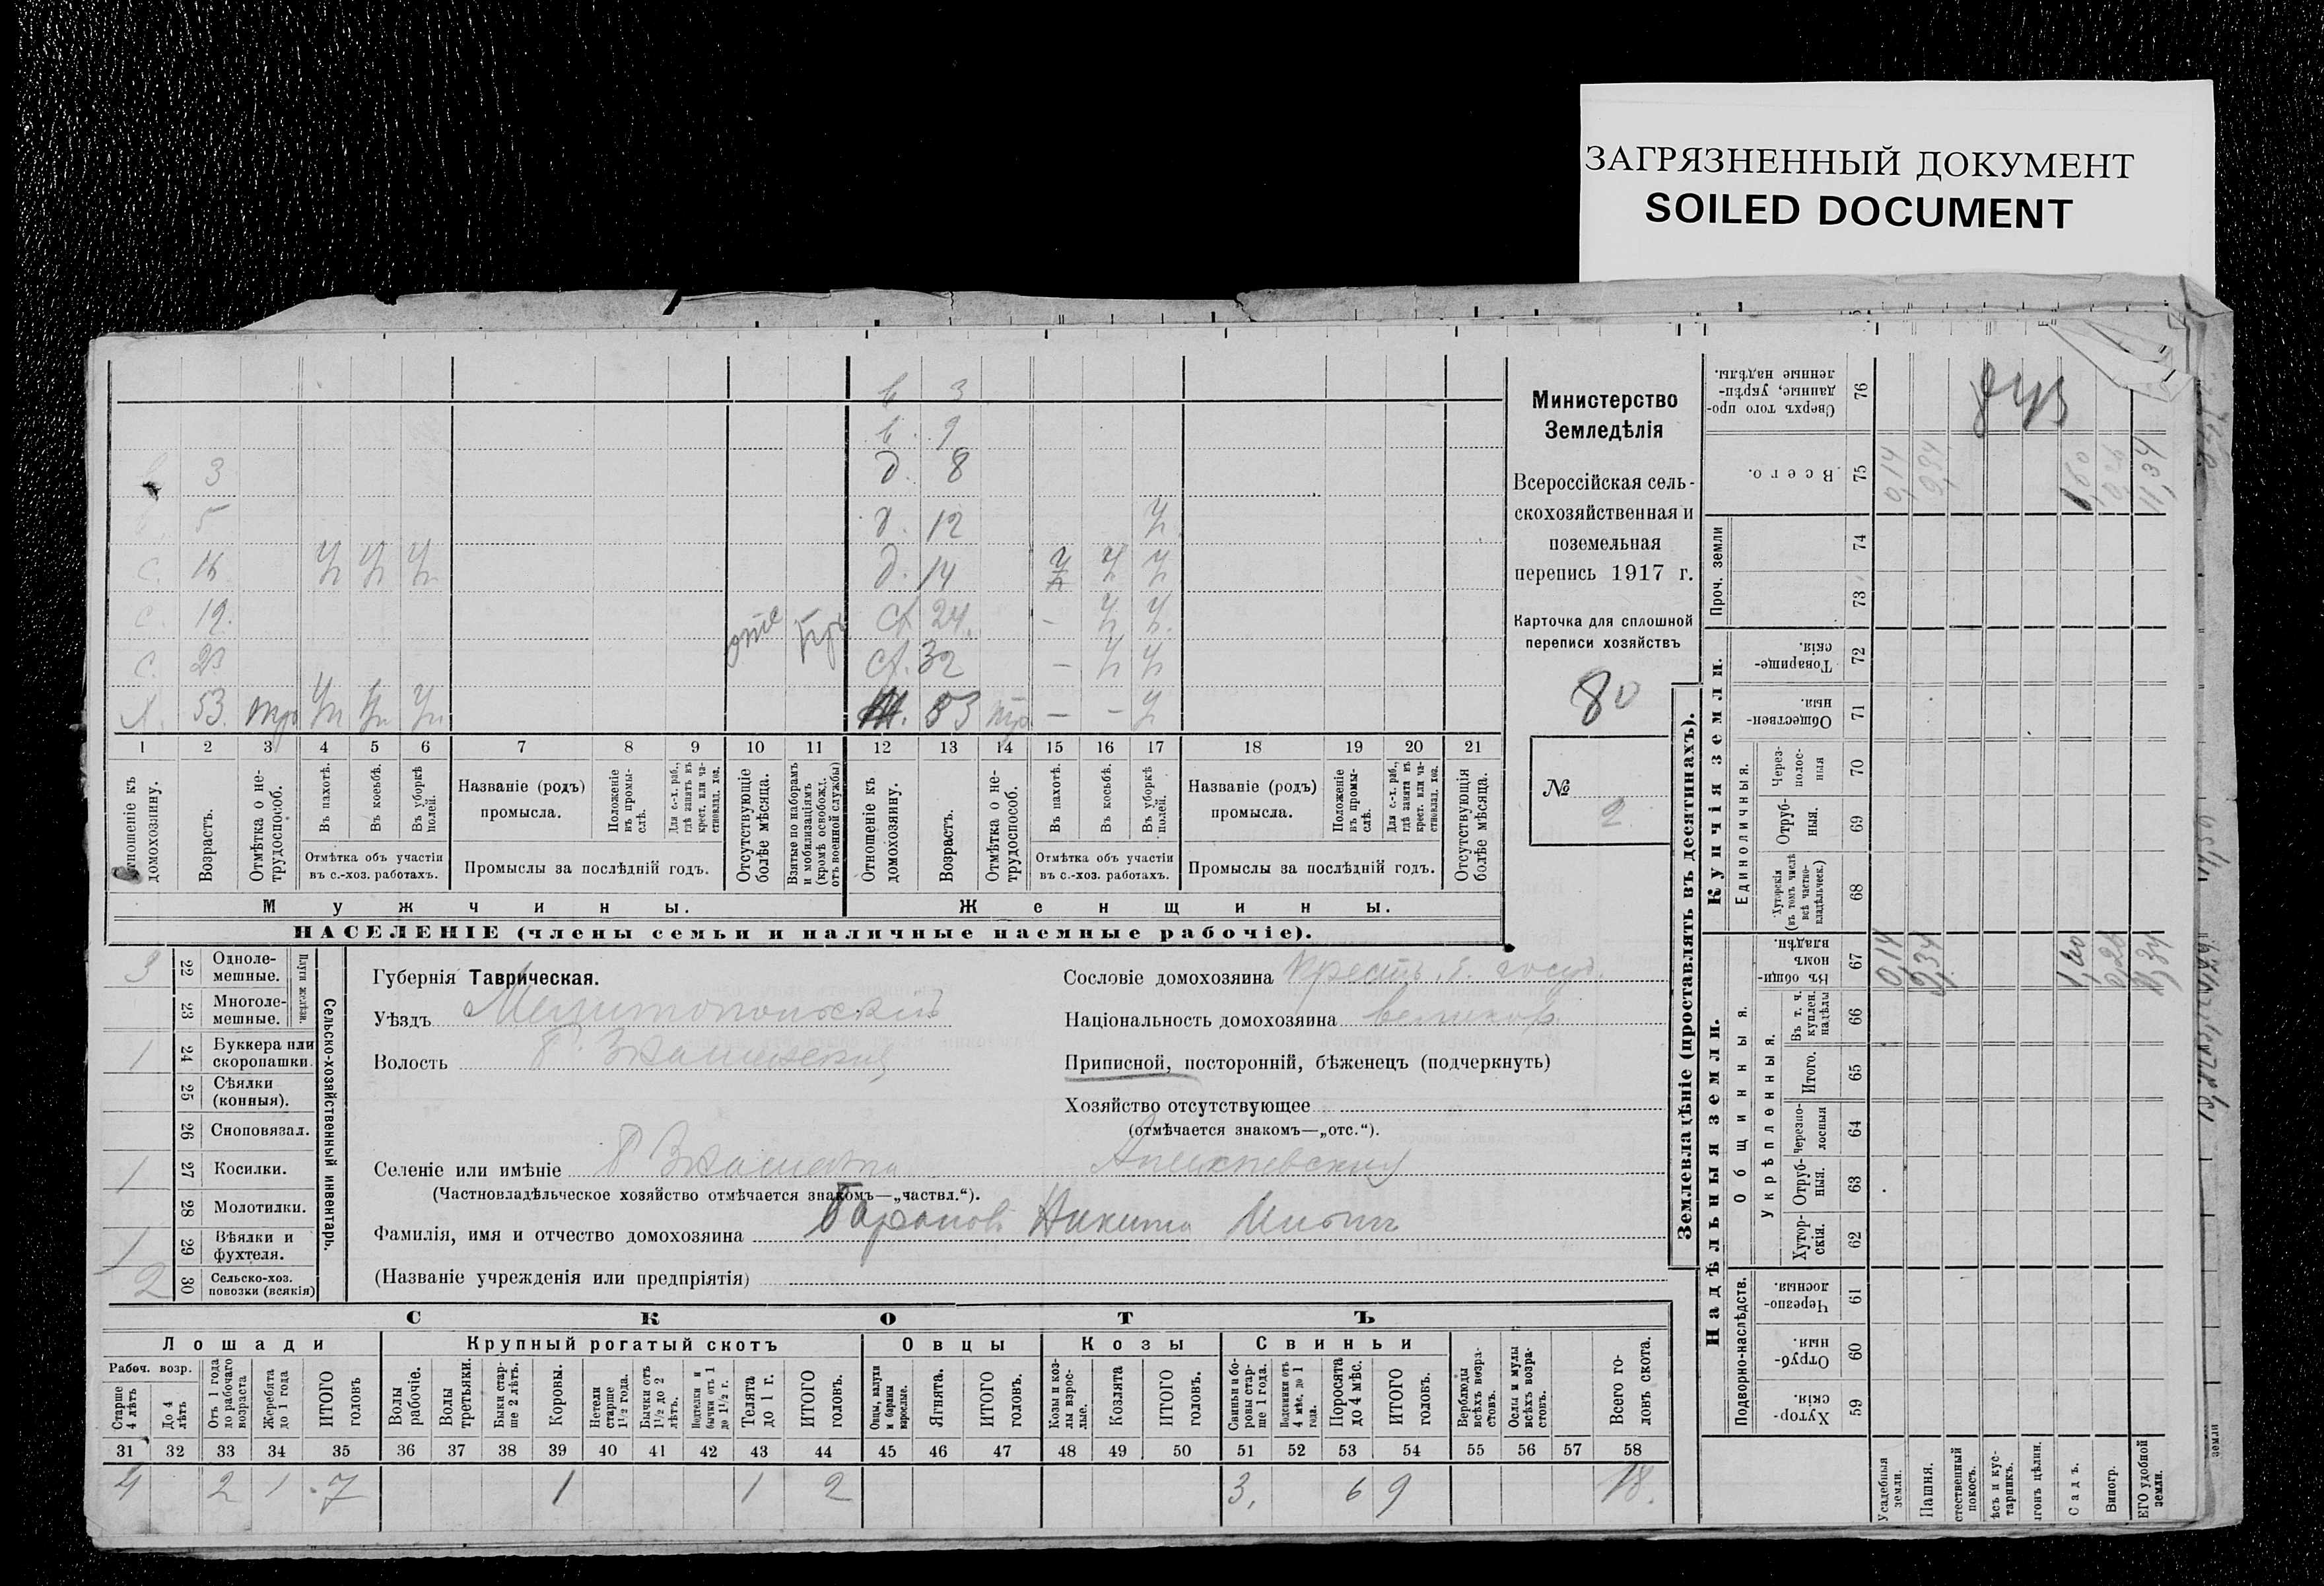 ЗАГРЯЗНЕННЫЙ ДОКУМЕНТ
SOILED DOCUMENT
в 3
в. 9
3 д. 8
5 д. 12 У
с. 16 У У У д. 14 У У У
с. 19. сн. 24. - У У
с. 23 отс сн. 32 - У У
х. 53. У У У 53 - - У
1 2 3 4 5 6 7 8 9 10 11 12 13 14 15 16 17 18 19 20 21
Отношеніе къ домохозяину.
Возрастъ.
Отмѣтка о не-трудоспособ.
Въ пахотѣ.
Въ косьбѣ.
Въ уборкѣ полей.
Отмѣтка объ участіи въ с.-хоз. работахъ.
Названіе (родъ) промысла.
Положеніе въ промы-слѣ.
Для с.-х. раб., гдѣ занятъ въ крест. или ча-стновлад. хоз.
Промыслы за послѣдній годъ.
Отсутствующіе болѣе мѣсяца.
Взятые по наборамъ и мобилизаціямъ (кромѣ освобожд. отъ военной службы)
Отношеніе къ домохозяину.
Возрастъ.
Отмѣтка о не-трудоспособ.
Въ пахотѣ.
Въ косьбѣ.
Въ уборкѣ полей.
Отмѣтка объ участіи въ с.-хоз. работахъ.
Названіе (родъ) промысла.
Положеніе въ промы-слѣ.
Для с.-х. раб., гдѣ занята въ крест. или ча-стновлад. хоз.
Промыслы за послѣдній годъ.
Отсутствующія болѣе мѣсяца.
Мужчины. Женщины.
НАСЕЛЕНІЕ (члены семьи и наличные наемные рабочіе).
Министерство
Земледѣлія
Всероссійская сель-
скохозяйственная и
поземельная
перепись 1917 г.
Карточка для сплошной
переписи хозяйствъ
80
№ 2
Сельско-хозяйственный инвентарь.
Плуги желѣзн.
3 22 Одноле-мешные.
23 Многоле-мешные.
1 24 Буккера или скоропашки.
25 Сѣялки (конныя).
26 Сноповязал.
1 27 Косилки.
28 Молотилки.
1 29 Вѣялки и фухтеля.
2 30 Сельско-хоз. повозки (всякія)
Губернія Таврическая.
Уѣздъ Мелитопольскій
Волость Б. Знаменская
Селеніе или имѣніе Б Знаменка Алексеевский
(Частновладѣльческое хозяйство отмѣчается знакомъ—„частвл.“).
Фамилія, имя и отчество домохозяина Баранов Никита Ильич
(Названіе учрежденія или предпріятія)
Сословіе домохозяина Крестьян. б. госуд.
Національность домохозяина великор.
Приписной, посторонній, бѣженецъ (подчеркнуть)
Хозяйство отсутствующее
(отмѣчается знакомъ—„отс.“).
СКОТЪ
Лошади Крупный рогатый скотъ Овцы Козы Свиньи
Рабоч. возр.
Старше 4 лѣтъ
До 4 лѣтъ
Отъ 1 года до рабочаго возраста
Жеребята до 1 года
ИТОГО головъ
Волы рабочіе.
Волы третьяки.
Быки стар-ше 2 лѣтъ.
Коровы.
Нетели старше 1½ года.
Бычки отъ 1½ до 2 лѣтъ.
Подтелки и бычки отъ 1 до 1½ г.
Телята до 1 г.
ИТОГО головъ.
Овцы, валухи и бараны взрослые.
Ягнята.
ИТОГО головъ.
Козы и коз-лы взрос-лые.
Козлята
ИТОГО головъ.
Свиньи и бо-ровы стар-ше 1 года.
Подсвинки отъ 4 мѣс. до 1 года.
Поросята до 4 мѣс.
ИТОГО головъ.
Верблюды всѣхъ возра-стовъ.
Ослы и мулы всѣхъ возра-стовъ.
Всего го-ловъ скота.
31 32 33 34 35 36 37 38 39 40 41 42 43 44 45 46 47 48 49 50 51 52 53 54 55 56 57 58
4 2 1 7 1 1 2 3. 6 9 18.
Землевладѣніе (проставлять въ десятинахъ).
Купчія земли.
Надѣльныя земли.
Сверхъ того про-данные, укрѣп-ленные надѣлы. 76
Всего. 75 0,14 9,34 1,60 0,26 11,34
Проч. земли 74 73
Товарище-скія. 72
Обществен-ныя. 71
Единоличныя.
Через-полос-ныя 70
Отруб-ныя. 69
Хуторскія (въ томъ числѣ всѣ частно-владѣльческ.) 68
Общинныя.
Въ общи-номъ владѣн. 67 0,14 9,34 1,60 0,26 11,34
Укрѣпленныя.
Въ т. ч. куплен. надѣлы 66
Итого. 65
Черезпо-лосныя 64
Отруб-ныя. 63
Хутор-скія. 62
Подворно-наслѣдств.
Черезпо-лосныя. 61
Отруб-ныя. 60
Хутор-скія. 59
Усадебныя земли.
Пашня.
стественный покосъ.
ѣсъ и кус-тарникъ.
гонъ цѣлин.
Садъ.
Виногр.
ЕГО удобной земли.
земли